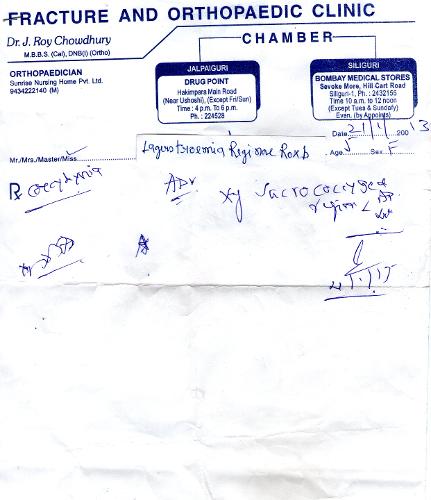 FRACTURE AND ORTHOPAEDIC CLINIC
Dr. J. Roy Chowdhury
M.B.B.S. (Cal), DNB(I) (Ortho)
ORTHOPAEDICIAN
Sunrise Nursing Home Pvt. Ltd.
9434222140 (M)
CHAMBER
JALPAIGURI
DRUG POINT
Hakimpara Main Road
(Near Ushoshi), (Except Fri/Sun)
Time : 4 p.m. To 6 p.m.
Ph. : 224528
SILIGURI
BOMBAY MEDICAL STORES
Sevoke More, Hill Cart Road
Siliguri-1, Ph. : 2432155
Time 10 a.m. to 12 noon
(Except Tues & Sunday)
Even. (by Appoints)
Date 21/1/2013
Mr./Mrs./Master/Miss Lagerstroemia Reginae Roxb Age Sex F
Adv
Xy Sacrococcygeal
region < AP
Lat